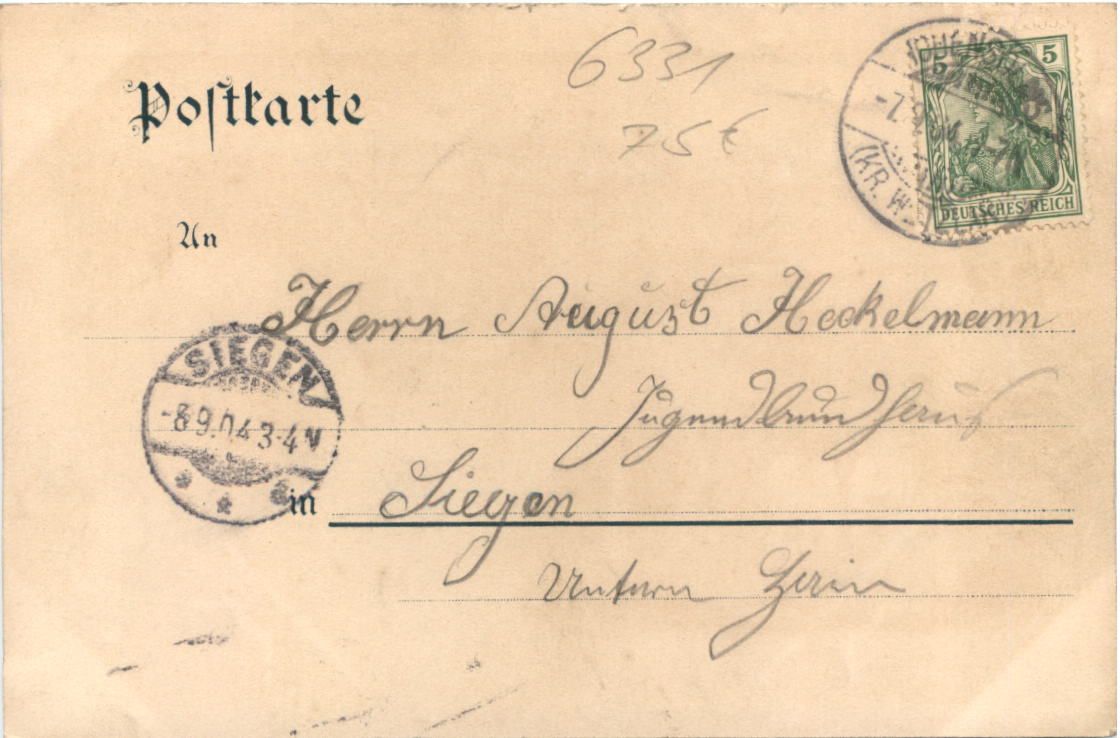 Postkarte
6331
75€
5 5
DEUTSCHES REICH
(KR. W
An
Herrn August Heckelmann
Jugendbundhaus
SIEGEN
-8 9.04 3-4 N
in Siegen
Unterm Hain